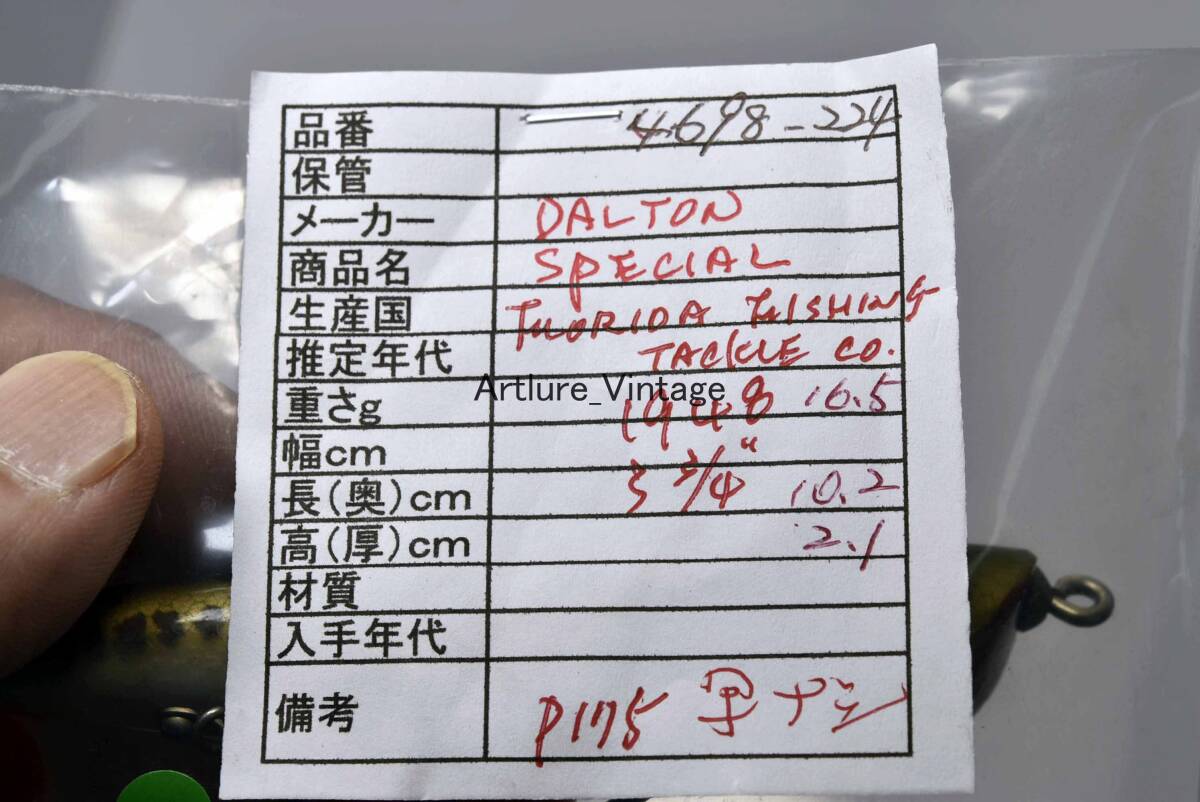 品番 4698-224
保管
メーカー DALTON
商品名 SPECIAL
生産国 FLORIDA FISHING
推定年代 TACKLE CO.
Artlure_Vintage
重さg 1948 16.5
幅cm
長(奥)cm 3 3/4" 10.2
高(厚)cm 2.1
材質
入手年代
備考 P175 字ナシ